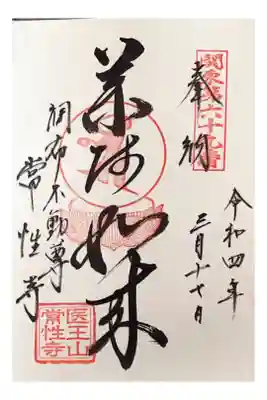 関東第六十九番
奉納
令和四年
三月十七日
薬師如来
調布不動尊
常性寺
医王山
常性寺